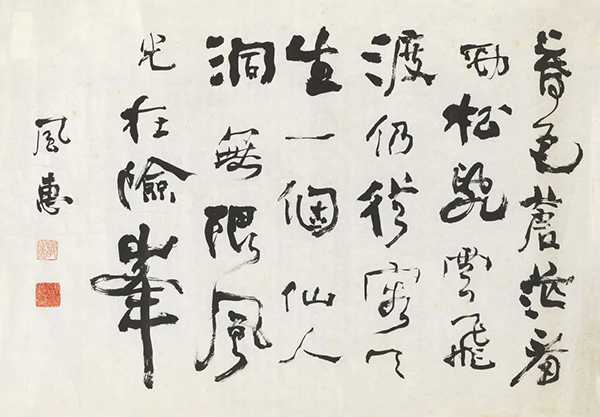 暮色蒼茫看
勁松亂雲飛
渡仍從容天
生一個仙人
洞無限風
光在險峯
風惠